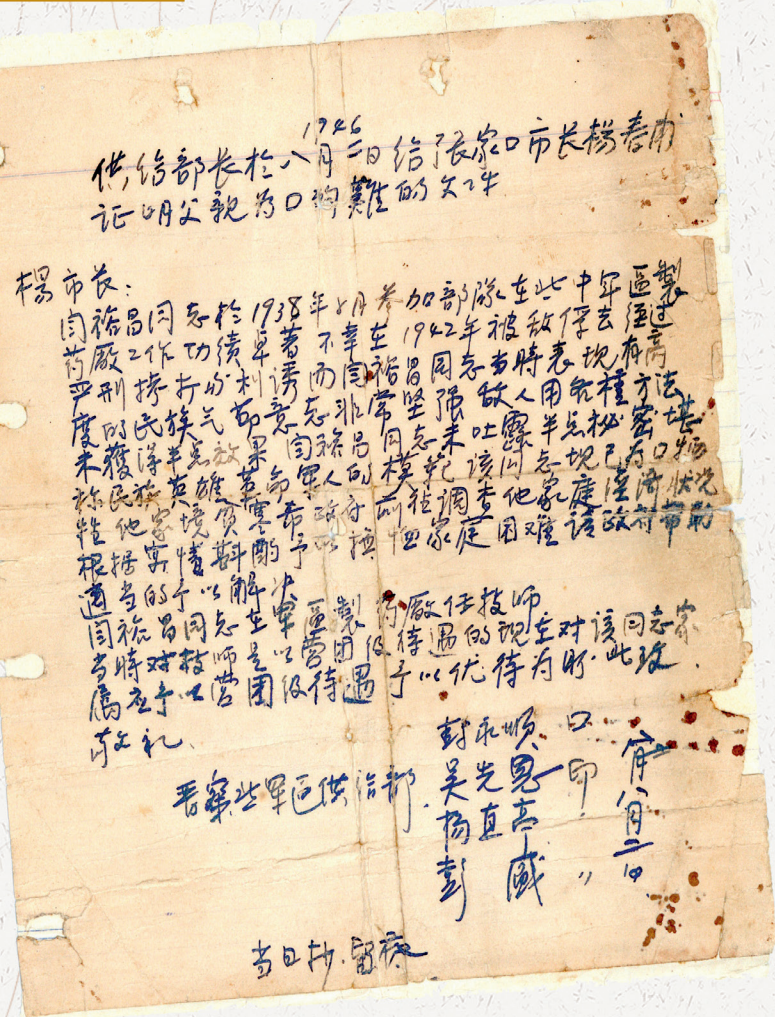 1946
供给部长於八月二日给张家口市长楊春甫
证明父親为口殉難的文件
楊市长：
闫裕昌同志於1938年5月参加部隊在些中军區製
药厰工作功绩卓著不幸在1942年被敌俘去经过
严刑拷打 利诱而闫裕昌同志当時表现有高
度的民族气節意志非常坚强敌人用各種方法
未獲得半点效果闫裕昌同志未吐露半点秘密堪
称民族英雄 军人的模範该同志已为口牺
牲他家境贫寒希政府前 調查他家庭 濟状况
根据实情斟酌予以撫恤家庭困难請政府帮助
適当的予以解决
闫裕昌同志在军區製药厰任技师
当時对技师是以 团级待遇的现在对该同志家
属应予以营团级待遇予以优待为盼.此致
敬礼
晋察些军區供给部
永顺 口印
吴先恩
杨直亭
彭 〃
八月二日
当日抄.留底